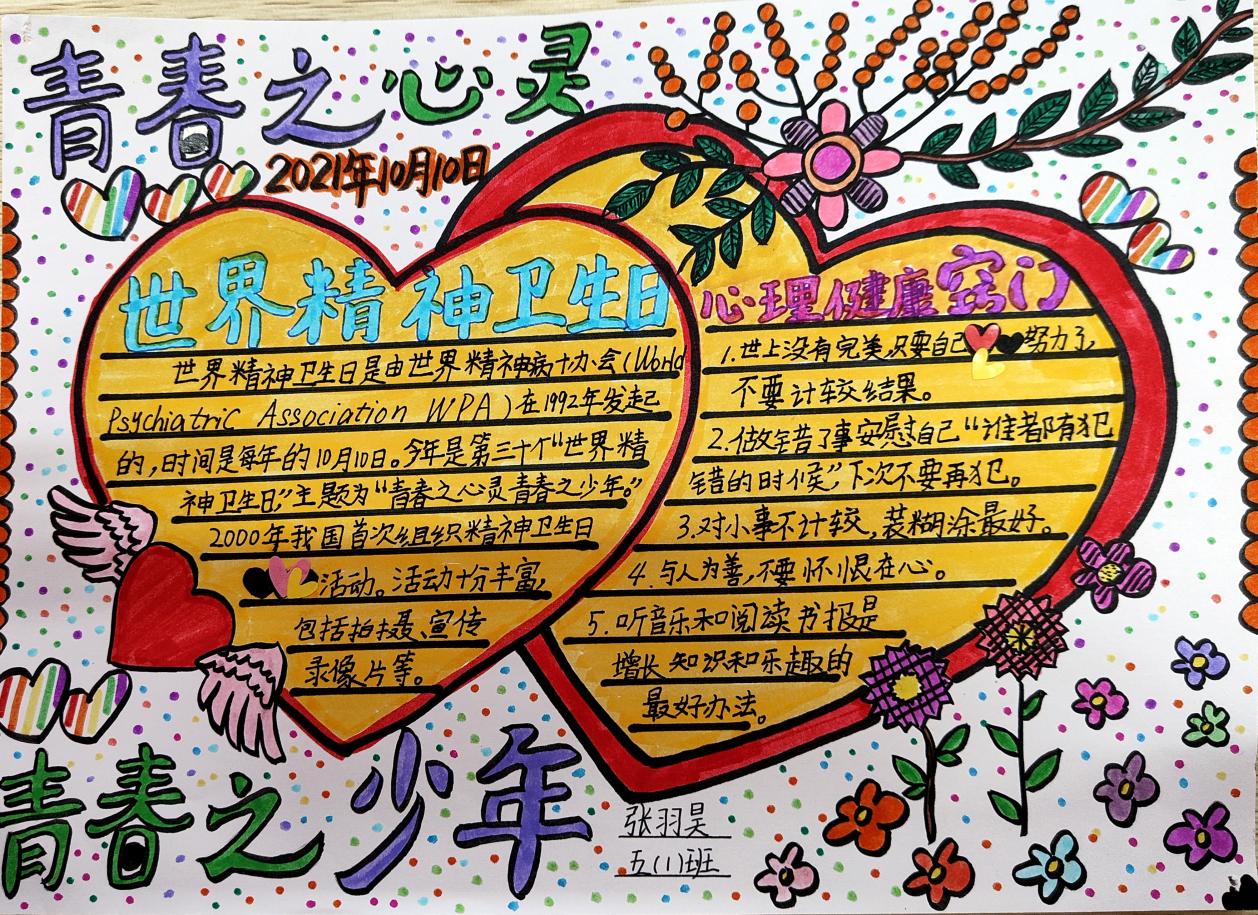 青春之心灵
2021年10月10日
世界精神卫生日
世界精神卫生日是由世界精神病协会(World
Psychiatric Association WPA)在1992年发起
的,时间是每年的10月10日。今年是第三十个“世界精
神卫生日”,主题为“青春之心灵青春之少年。”
2000年我国首次组织精神卫生日
活动。活动十分丰富,
包括拍摄、宣传
录像片等。
心理健康窍门
1.世上没有完美,只要自己努力了,
不要计较结果。
2.做错了事安慰自己“谁都有犯
错的时候”,下次不要再犯。
3.对小事不计较,装糊涂最好。
4.与人为善,不要怀恨在心。
5.听音乐和阅读书报是
增长知识和乐趣的
最好办法。
青春之少年
张羽昊
五(1)班